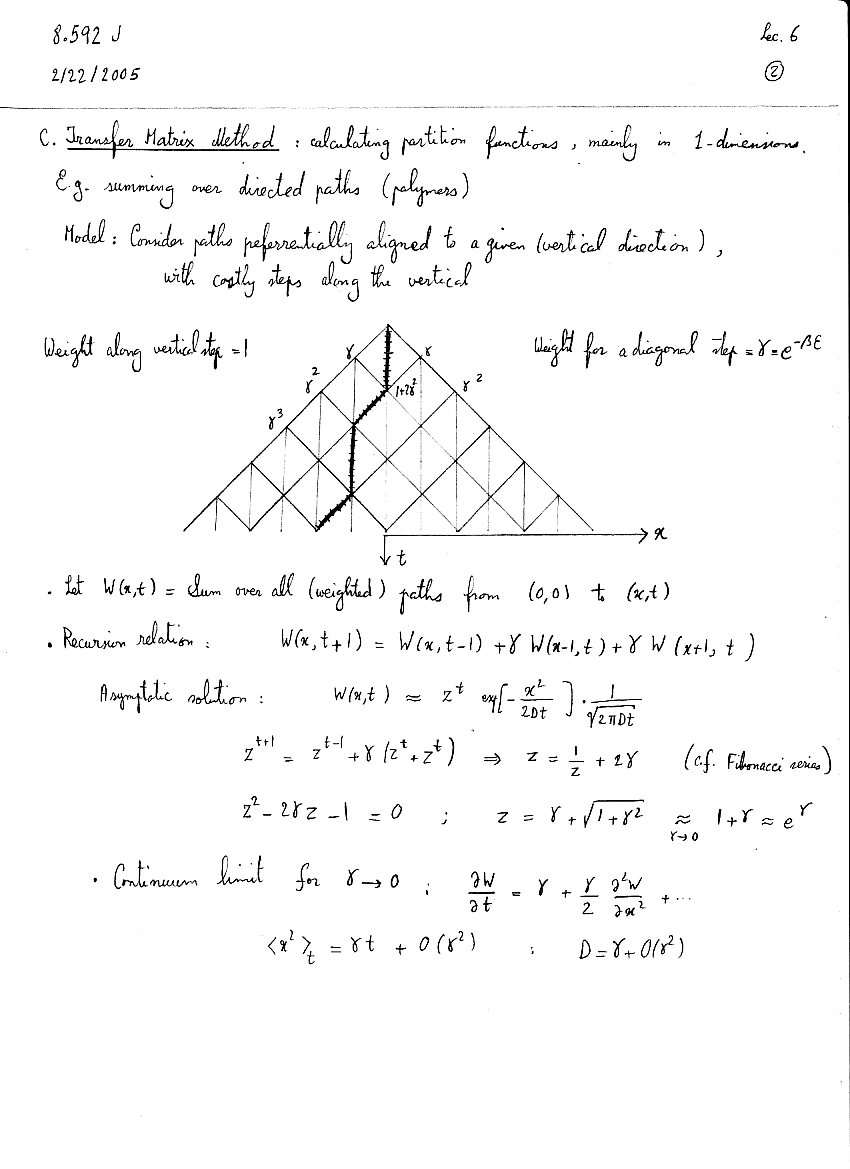 8.592 J
Lec. 6
2/22/2005
②
C. Transfer Matrix Method : calculating partition functions, mainly in 1-dimensions.
E.g. summing over directed paths (polymers)
Model: Consider paths preferrentially aligned to a given (vertical direction),
with costly steps along the vertical
Weight along vertical step = 1
γ
γ
Weight for a diagonal step = γ = e^{-βε}
γ²
1+2γ²
γ²
γ³
x
t
. Let W(x,t) = Sum over all (weighted) paths from (0,0) to (x,t)
• Recursion relation : W(x,t+1) = W(x,t-1) + γ W(x-1,t) + γ W(x+1, t)
Asymptotic solution : W(x,t) ≈ z^t exp[-x²/2Dt] · 1/√(2πDt)
z^{t+1} = z^{t-1} + γ(z^t + z^t) ⇒ z = 1/z + 2γ (c.f. Fibonacci series)
z² - 2γz - 1 = 0 ; z = γ + √(1+γ²) ≈_{γ→0} 1+γ ≈ e^γ
• Continuum limit for γ → 0 ; ∂W/∂t = γ + γ/2 ∂²W/∂x² + ...
⟨x²⟩_t = γt + O(γ²) ; D = γ + O(γ²)